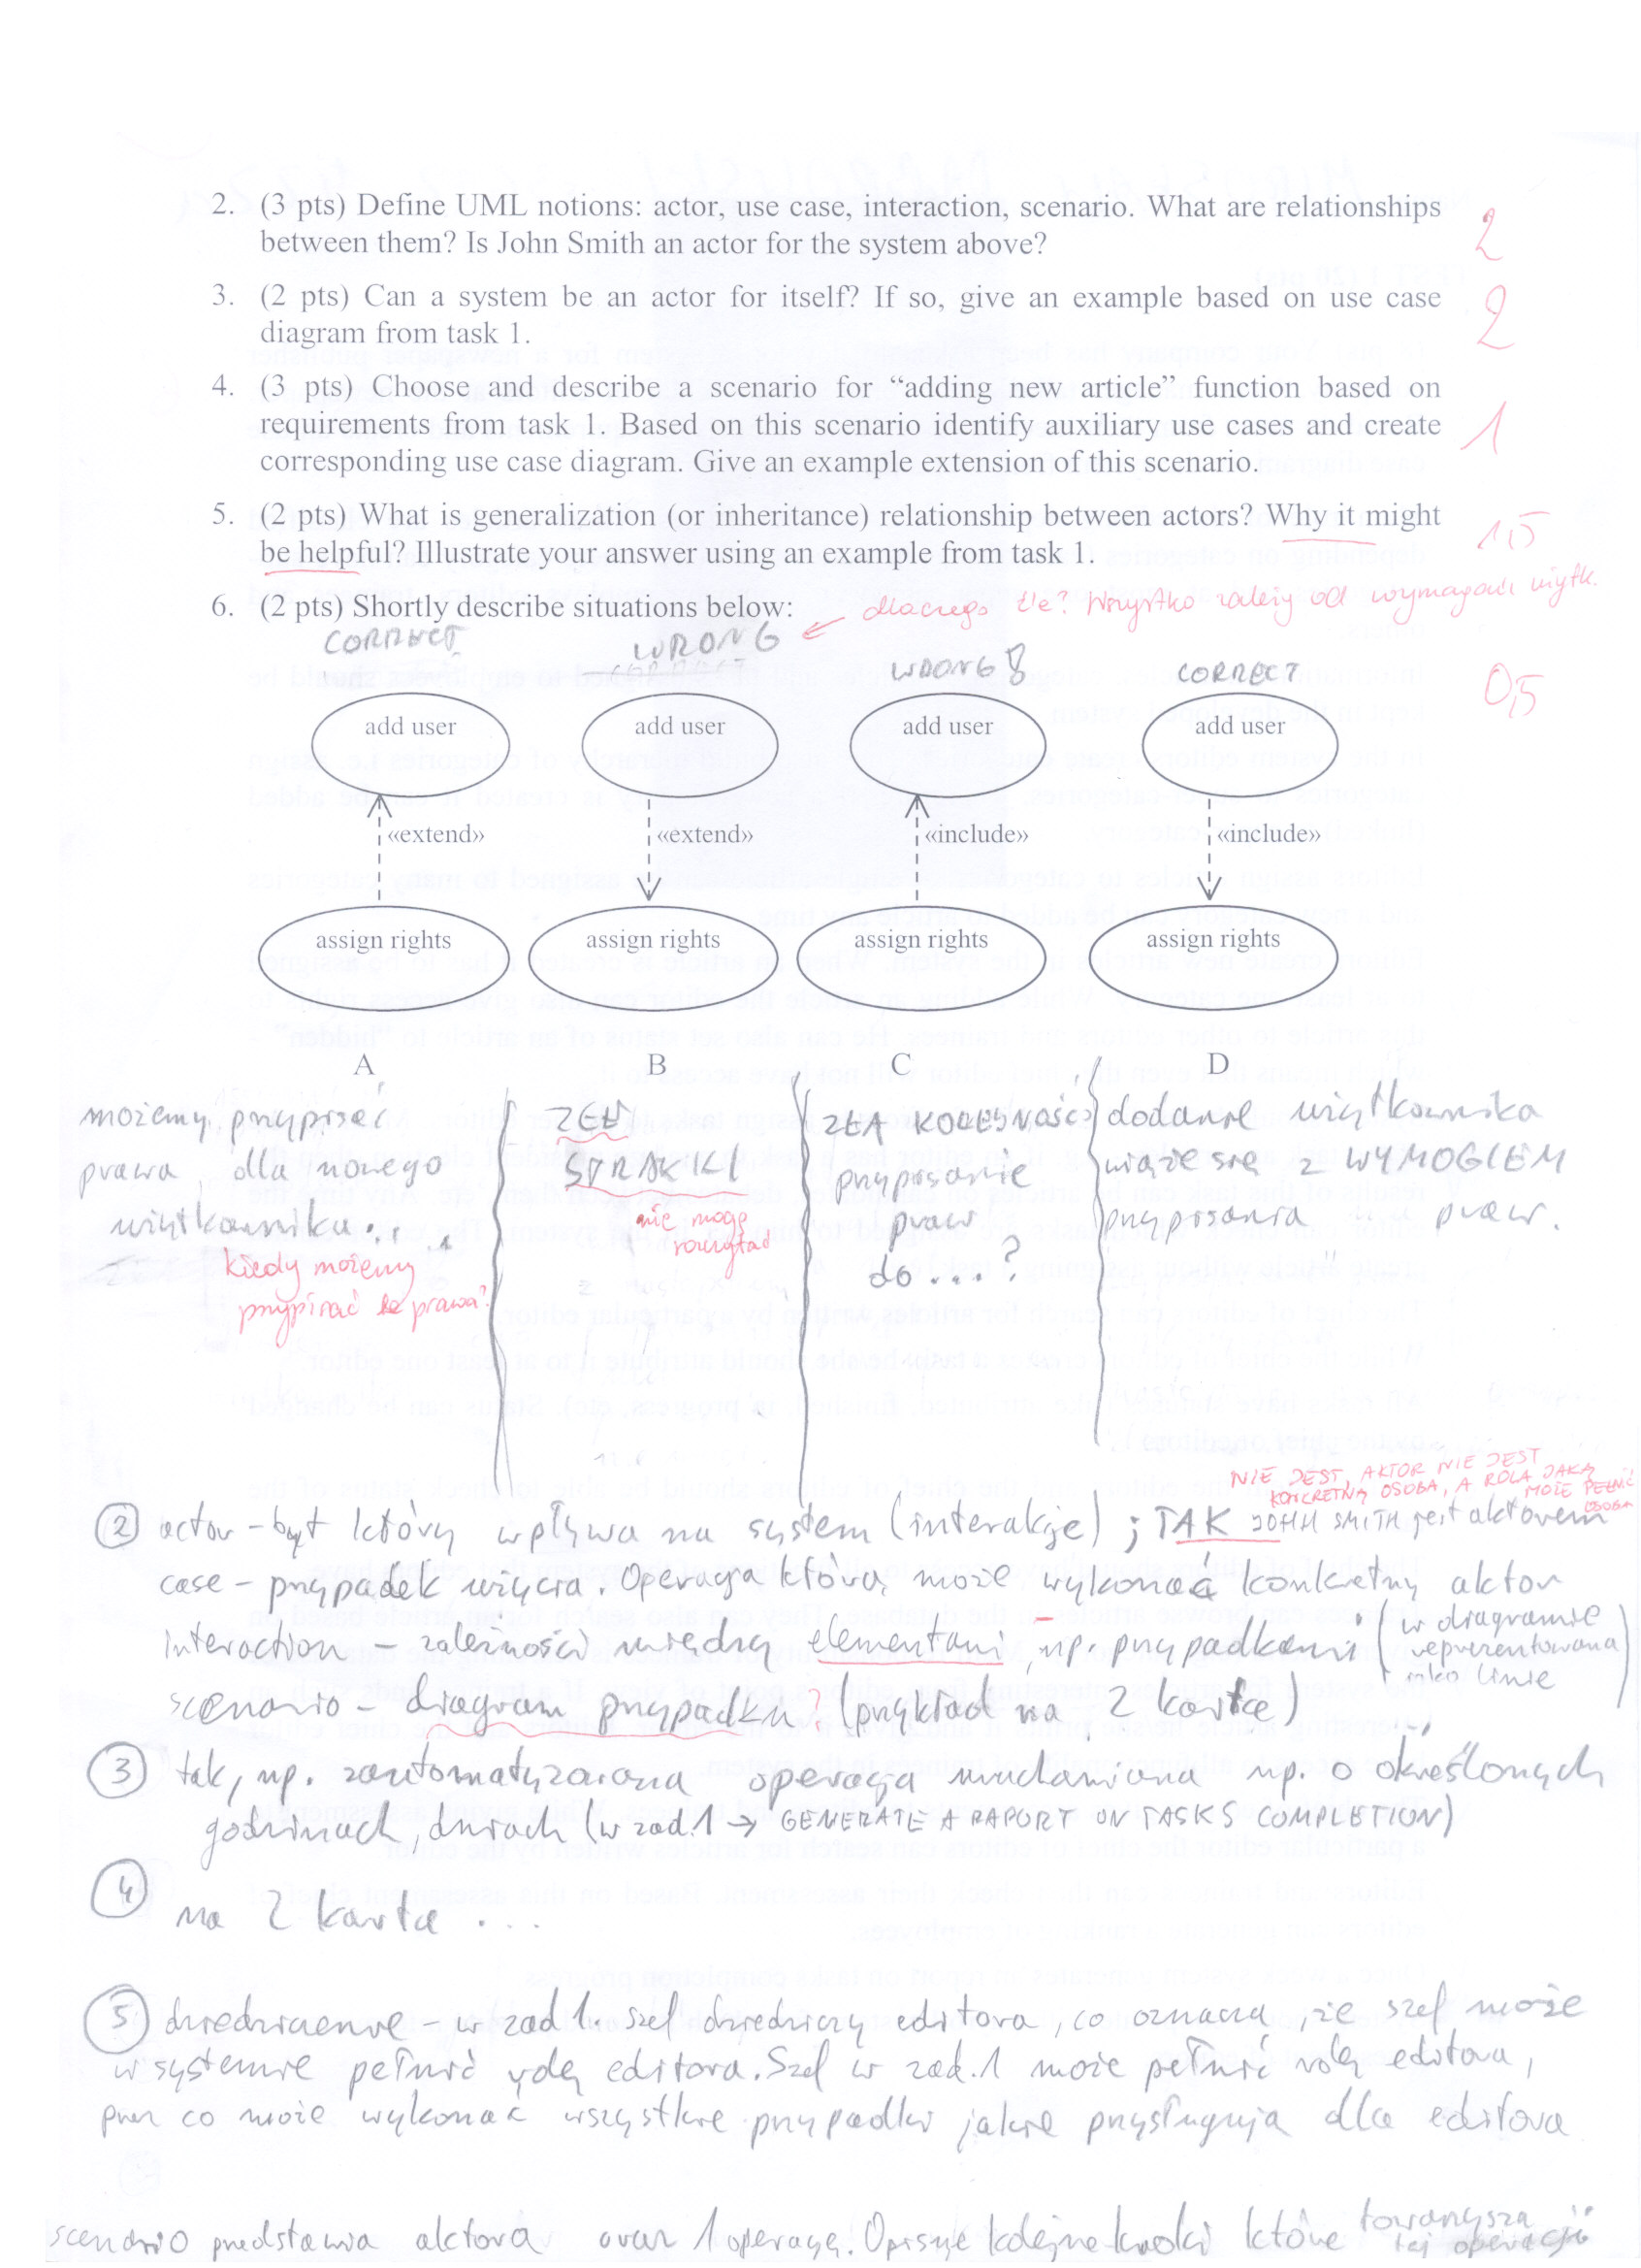 2. (3 pts) Define UML notions: actor, use case, interaction, scenario. What are relationships
between them? Is John Smith an actor for the system above?
2
3. (2 pts) Can a system be an actor for itself? If so, give an example based on use case
diagram from task 1.
2
4. (3 pts) Choose and describe a scenario for “adding new article” function based on
requirements from task 1. Based on this scenario identify auxiliary use cases and create
corresponding use case diagram. Give an example extension of this scenario.
1
5. (2 pts) What is generalization (or inheritance) relationship between actors? Why it might
be helpful? Illustrate your answer using an example from task 1.
1,5
6. (2 pts) Shortly describe situations below:
dlaczego źle? Wszystko zależy od wymagań użytk.
0,5
CORRECT WRONG WRONG! CORRECT
add user add user add user add user
«extend» «extend» «include» «include»
assign rights assign rights assign rights assign rights
A B C D
możemy przypisać
prawa dla nowego
użytkownika
kiedy możemy
przypisać te prawa?
ZŁE
STRZAŁKI
nie mogę
ZŁA KOLEJNOŚĆ
przypisanie
praw
do ....?
dodanie użytkownika
wiąże się z WYMOGIEM
przypisania praw.
NIE JEST, AKTOR NIE JEST
KONKRETNĄ OSOBĄ, A ROLĄ JAKĄ
MOŻE PEŁNIĆ
OSOBA
② actor - byt który wpływa na system (interakcje) ; TAK JOHN SMITH jest aktorem
case - przypadek użycia. Operacja którą może wykonać konkretny aktor
interaction - zależności między elementami np. przypadkami (w diagramie
reprezentowana
jako linie)
scenario - diagram przypadku ? (przykład na 2 kartce)
③ tak, np. zautomatyzowana operacja uruchamiana np. o określonych
godzinach, dniach (w zad.1 → GENERATE A RAPORT ON TASKS COMPLETION)
④ na 2 kartce ...
⑤ dziedziczenie - w zad 1. szef dziedziczy editora, co oznacza, że szef może
w systemie pełnić rolę editora. Szef w zad.1 może pełnić rolę editora,
przez co może wykonać wszystkie przypadki jakie przysługują dla editora
scenario przedstawia aktora oraz 1 operację. Opisuje kolejne kroki które towarzyszą
tej operacji